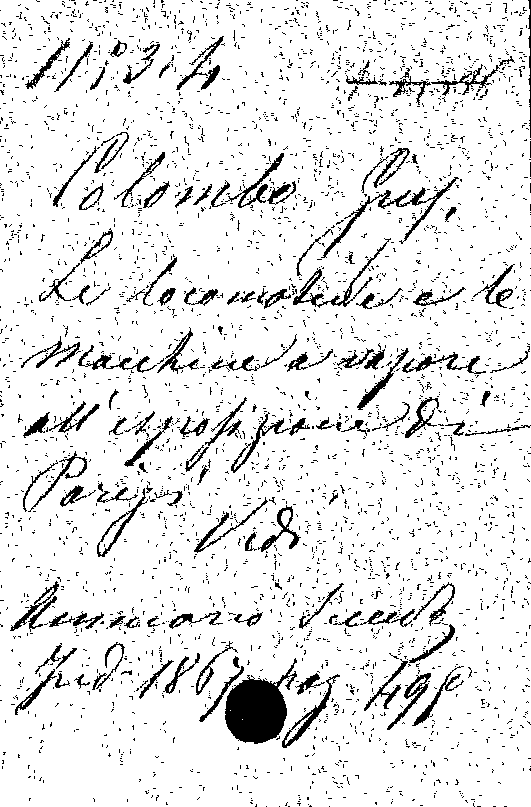 Colombo Gius.
Le locomotive e le
macchine a vapore
all'esposizione di
Parigi
Vedi
Annuario Scient
Ind 1867 pag 495